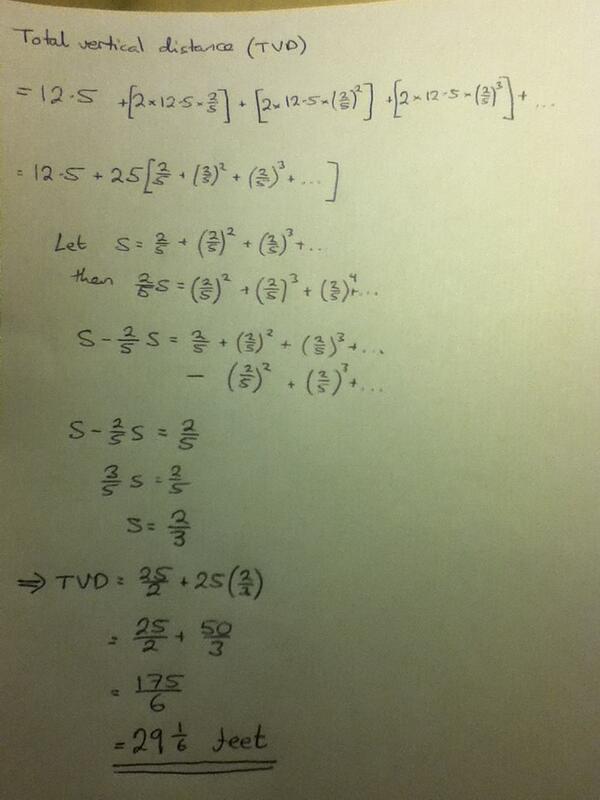 Total vertical distance (TVD)
= 12·5 + [2 × 12·5 × 2/5] + [2 × 12·5 × (2/5)²] + [2 × 12·5 × (2/5)³] + ...
= 12·5 + 25[2/5 + (2/5)² + (2/5)³ + ...]
Let S = 2/5 + (2/5)² + (2/5)³ + ..
then 2/5 S = (2/5)² + (2/5)³ + (2/5)⁴ + ...
S - 2/5 S = 2/5 + (2/5)² + (2/5)³ + ...
- (2/5)² + (2/5)³ + ...
S - 2/5 S = 2/5
3/5 S = 2/5
S = 2/3
⇒ TVD = 25/2 + 25(2/3)
= 25/2 + 50/3
= 175/6
= 29 1/6 feet